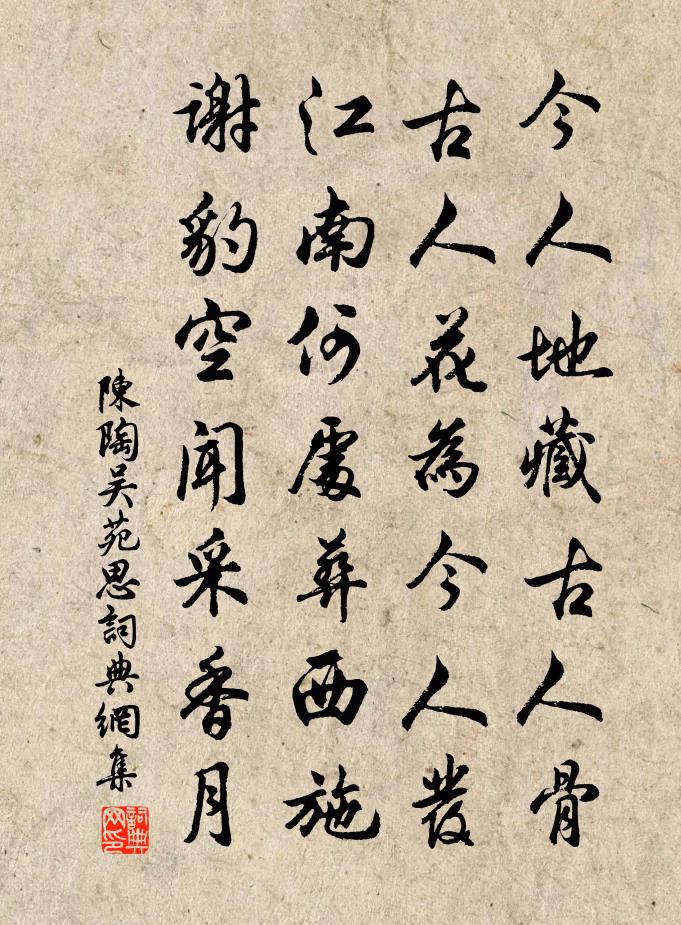 今人地藏古人骨
古人花為今人發
江南何處葬西施
謝豹空聞采香月
陳陶吴苑思詞典網集
詞典
网印